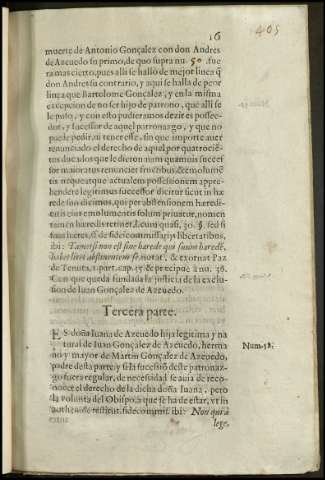 405
16
muerte de Antonio Gonçalez con don Andres
de Azeuedo su primo, de quo supra nu. 50. fue
ra mas cierto, pues alli se hallò de mejor linea q̃
don Andres su contrario, y aqui se halla de peor
linea que Bartolome Gonçalez, y en la misma
excepcion de no ser hijo de patrono, que alli se
le puso, y con esto pudieramos dezir es posseе
dor, y successor de aquel patronazgo, y que no
puede pedir, ni tener este, sin que importe auer
renunciado el derecho de aquel por quatrocie
tos ducados que le dieron nam quamuis succes
sor maioratus renunciet fructibus, & emolumē
tis neque actualem possessionem appre
hendere legitimus successor dicitur sicut in hæ
rede suo dicimus, qui per abstensionem hæredi-
tatis eius emolumentis solum priuatur, nomen
tamen hæredis retinet, l.cum quasi, 30. §. sed si
suus hæres, ff. de fideicommissariis libertatibus,
ibi: Tametsi non est sine hærede qui suum hæredē
habet licet abstinentem se, notat, & exornat Paz
de Tenuta, 1. part. cap. 15. & præcipuè à nu. 38.
Con que queda fundada la justicia de la exclu
sion de Iuan Gonçalez de Azeuedo.
Tercera parte.
ES doña Iuana de Azeuedo hija legitima y na
tural de Iuan Gonçalez de Azeuedo, herma
no y mayor de Martin Gonçalez de Azeuedo,
padre desta parte, y si la successiō deste patronaz-
go fuera regular, de necessidad se auia de reco-
nocer el derecho de la dicha doña Iuana, pero
la voluntad del Obispo, à que se ha de estar, vt in
authent. de restitut. fideicommiss. ibi: Non qui à
lege,
Num. 58.